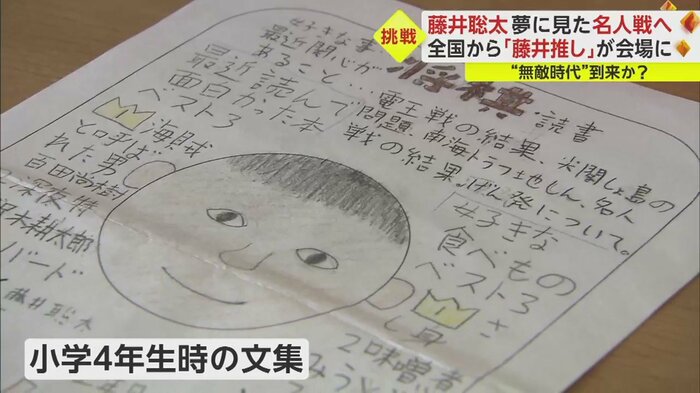 挑戦
藤井聡太 夢に見た名人戦へ
全国から「藤井推し」が会場に
“無敵時代”到来か?
将棋
読書
#好きな事
最近関心が
あること…電王戦の結果、尖閣しょ島の
問題、南海トラフ地しん、名人
戦の結果。げん発について。
最近読んで
面白かった本
ベスト3
海賊
と呼ば
れた男
百田尚樹
沢木耕太郎
藤井聡太
#好きな
食べもの
ベスト3
さ
し身
2味噌煮
小学4年生時の文集